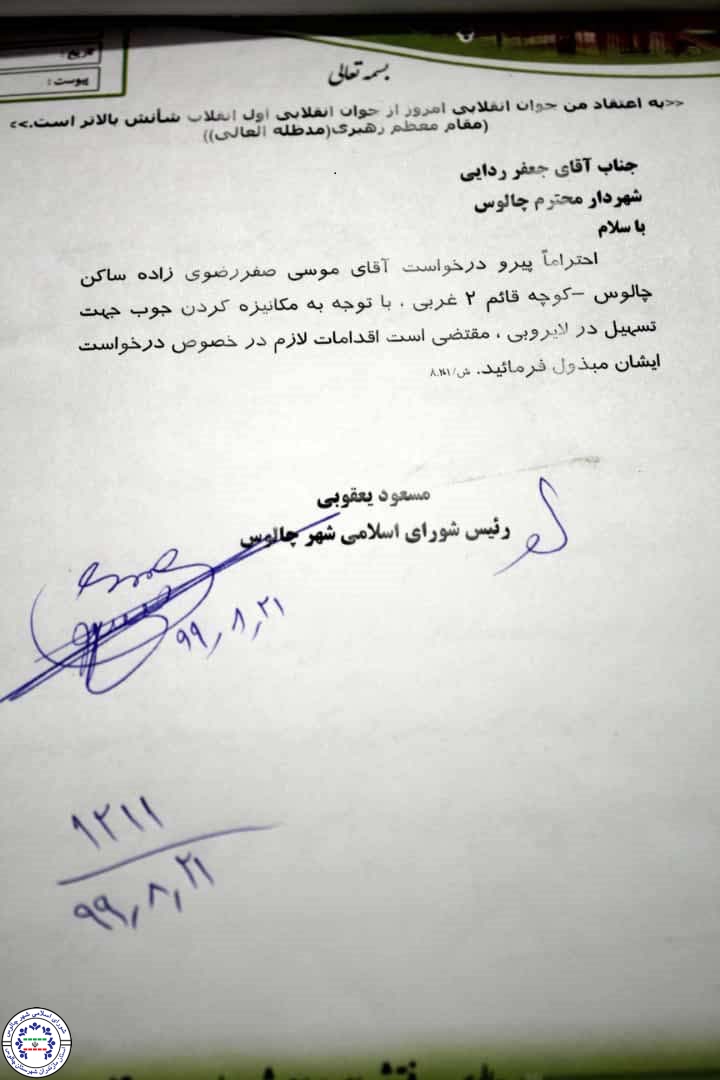 بسمه تعالی
تاریخ :
پیوست :
<<به اعتقاد من جوان انقلابی امروز از جوان انقلابی اول انقلاب شأنش بالاتر است.>>
(مقام معظم رهبری(مدظله العالی))
جناب آقای جعفر ردایی
شهردار محترم چالوس
با سلام
احتراماً پیرو درخواست آقای موسی صفررضوی زاده ساکن
چالوس –کوچه قائم ۲ غربی ، با توجه به مکانیزه کردن جوب جهت
تسهیل در لایروبی ، مقتضی است اقدامات لازم در خصوص درخواست
ایشان مبذول فرمائید.
مسعود یعقوبی
رئیس شورای اسلامی شهر چالوس
۹۹٫۸٫۲۱
۱۲۱۱
۹۹٫۸٫۲۱
شورای اسلامی شهر چالوس
استان مازندران شهرستان چالوس